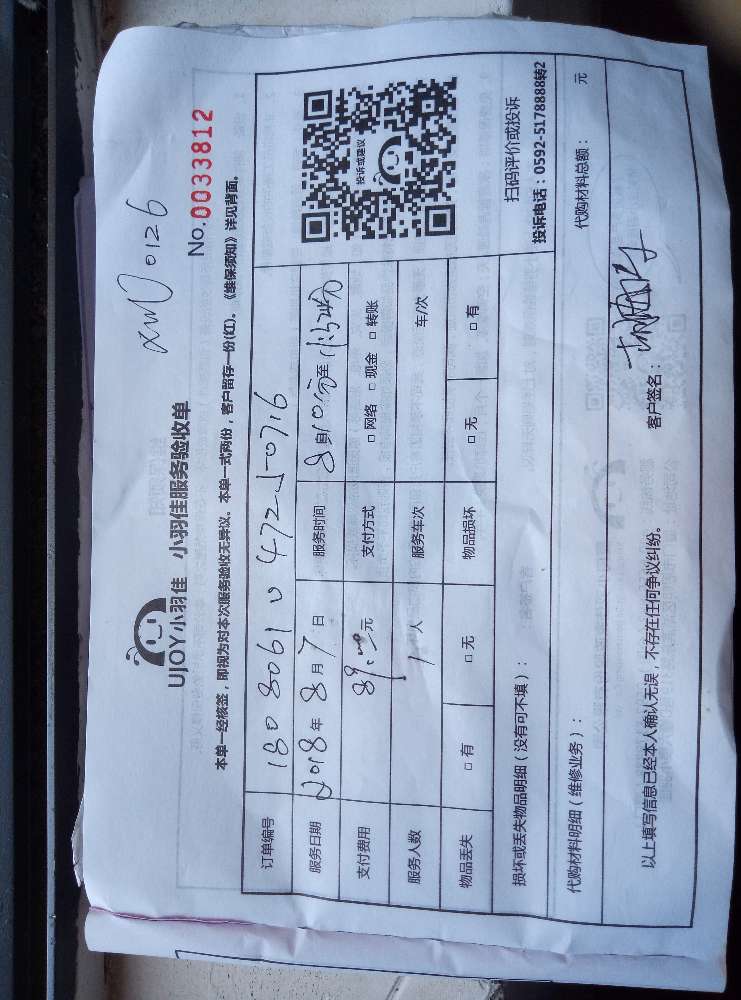 xm0126
UJOY小羽佳 小羽佳服务验收单
No.0033812
本单一经核签，即视为对本次服务验收无异议。本单一式两份，客户留存一份(红)。《维保须知》详见背面。
订单编号 180806104725-0716
服务日期 2018年8月7日 服务时间
支付费用 元 支付方式 □ 网络 □ 现金 □ 转账
服务人数 1 人 服务车次 车/次
物品丢失 □ 有 □ 无 物品损坏 □ 无 □ 有
投诉或建议
扫码评价或投诉
投诉电话：0592-5178888转2
损坏或丢失物品明细（没有可不填）：
代购材料明细（维修业务）： 代购材料总额： 元
以上填写信息已经本人确认无误，不存在任何争议纠纷。 客户签名：